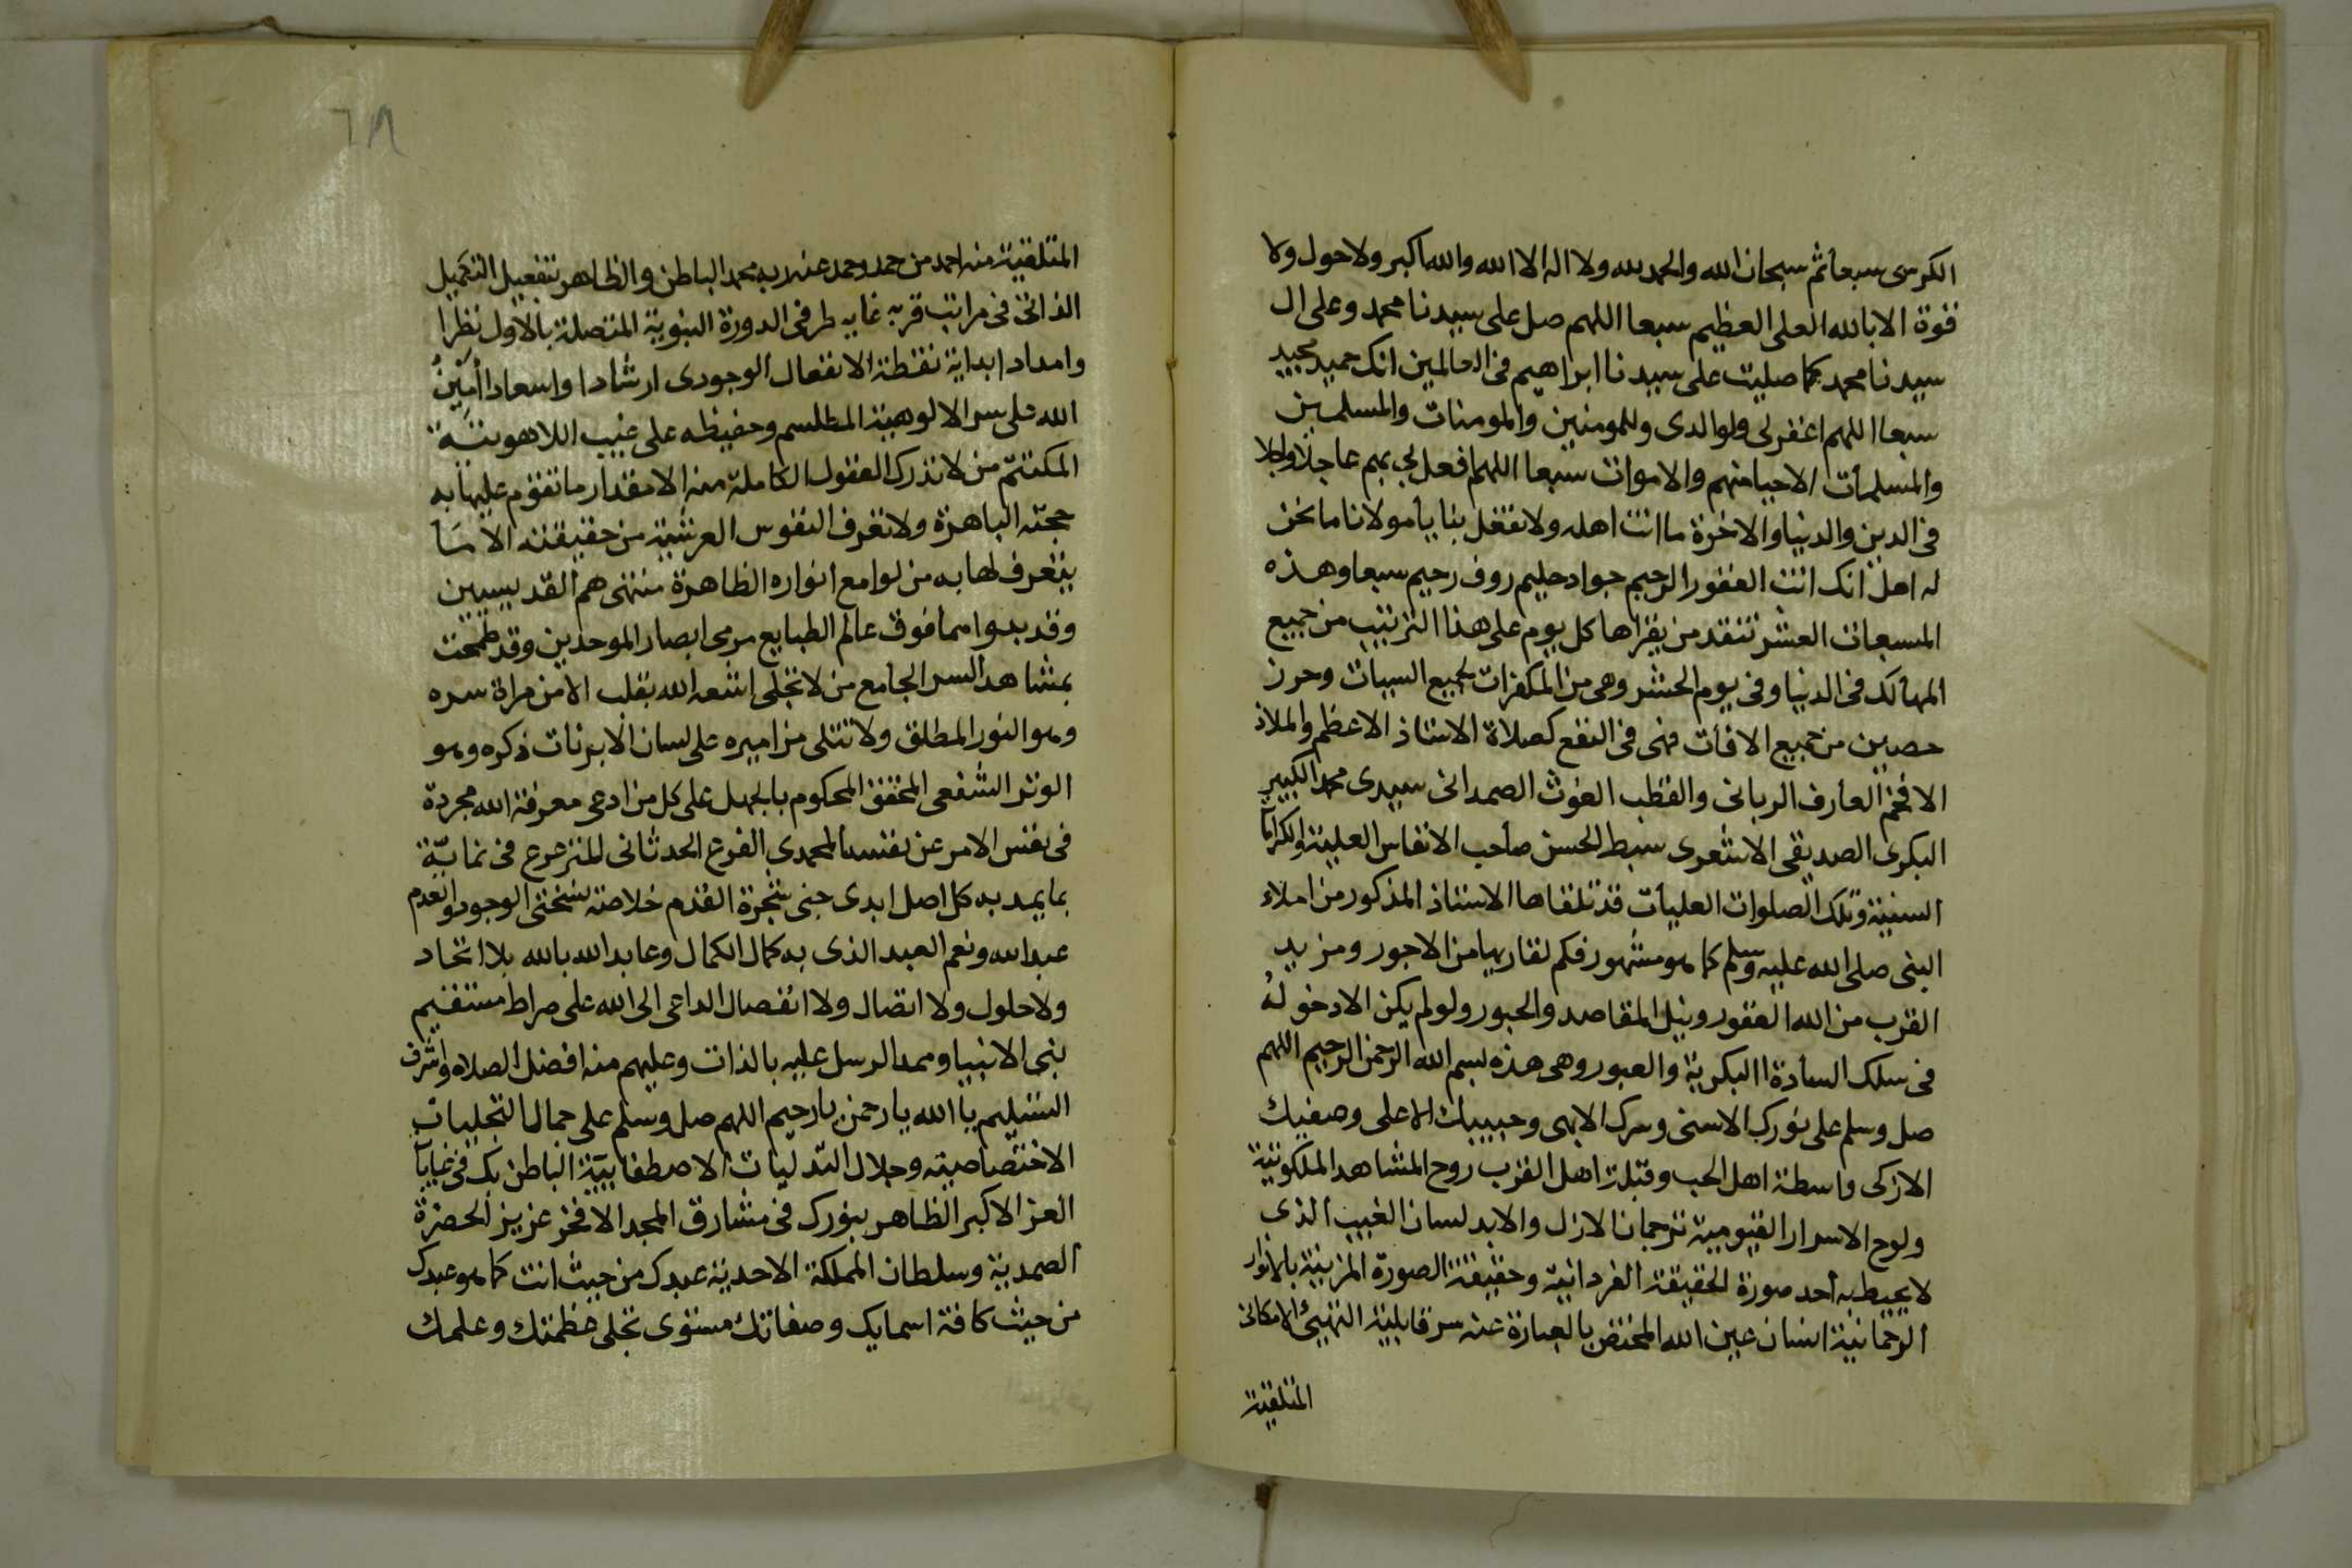 الكرسى سبعا ثم سبحان الله والحمد لله ولا اله الا الله والله اكبر ولا حول ولا
قوة الا بالله العلى العظيم سبعا اللهم صل على سيدنا محمد وعلى ال
سيدنا محمد كما صليت على سيدنا ابراهيم فى العالمين انك حميد مجيد
سبعا اللهم اغفر لى ولوالدى وللمومنين والمومنات والمسلمين
والمسلمات الاحيا منهم والاموات سبعا اللهم افعل بى بهم عاجلا واجلا
فى الدين والدنيا والاخرة ما انت اهله ولا تفعل بنا يا مولانا ما نحن
له اهل انك انت الغفور الرحيم جواد حليم روف رحيم سبعا وهذه
المسبعات العشر تنقد من يقراها كل يوم على هذا الترتيب من جميع
المهالك فى الدنيا وفى يوم الحشر وهى من المكفرات لجميع السيات وحرز
حصين من جميع الافات فهى فى النفع كصلاة الاستاذ الاعظم والملاذ
الافخم العارف الربانى والقطب الغوث الصمدانى سيدى محمد الكبير
البكرى الصديقى الاشعرى سبط الحسن صاحب الانفاس العلية والكرامات
السنية وتلك الصلوات العليات قد تلقاها الاستاذ المذكور من املاء
النبى صلى الله عليه وسلم كما هو مشهور فكم لقاريها من الاجور ومزيد
القرب من الله الغفور ونيل المقاصد والحبور ولو لم يكن الا دخوله
فى سلك السادة البكرية والعبور وهى هذه بسم الله الرحمن الرحيم اللهم
صل وسلم على نورك الاسنى وسرك الابهى وحبيبك الاعلى وصفيك
الازكى واسطة اهل الحب وقبلة اهل القرب روح المشاهد الملكوتية
ولوح الاسرار القيومية ترجمان الازل والابد لسان الغيب الذى
لا يحيط به احد صورة الحقيقة الفردانية وحقيقة الصورة المزينة بالانوار
الرحمانية انسان عين الله المختص بالعبارة عنه سر قابلية التهيئ الامكانى
المتلقية
٦٨
المتلقية منه احمد من حمد وحمد عند ربه محمد الباطن والظاهر بتفعيل التكميل
الذاتى فى مراتب قربه غاية طرفى الدورة النبوية المتصلة بالاول نظرا
وامدادا بداية نقطة الانفعال الوجودى ارشادا واسعادا امين
الله على سر الالوهية المطلسم وحفيظه على غيب اللاهوتية
المكتتم من لا تدرك العقول الكاملة منه الا مقدار ما تقوم عليها به
حجته الباهرة ولا تعرف النفوس العرشية من حقيقته الا ما
يتعرف لها به من لوامع انواره الظاهرة منتهى همم القدسيين
وقد بدوا مما فوق عالم الطبايع مرمى ابصار الموحدين وقد طمحت
بمشاهد السر الجامع من لا تجلى اشعه الله بقلب الا من مراة سره
وهو النور المطلق ولا تتلى مزاميره على لسان الا برنات ذكره وهو
الوتر الشفعى المحقق المحكوم بالجهل على كل من ادعى معرفة الله مجردة
فى نفس الامر عن نفسه المحمدى الفرع الحدثانى المترعرع فى نمايه
بما يمد به كل اصل ابدى جنى شجرة القدم خلاصة نسختى الوجود والعدم
عبد الله ونعم العبد الذى به كمال الكمال وعابد الله بالله بلا اتحاد
ولا حلول ولا اتصال ولا انفصال الداعى الى الله على صراط مستقيم
نبى الانبيا وممد الرسل عليه بالذات وعليهم منه افضل الصلاه واشرف
التسليم يا الله يا رحمن يا رحيم اللهم صل وسلم على جمال التجليات
الاختصاصيته وجلال التدليات الاصطفايية الباطن بك فى غيابات
العز الاكبر الظاهر بنورك فى مشارق المجد الافخر عزيز الحضرة
الصمدية وسلطان المملكة الاحدية عبدك من حيث انت كما هو عبدك
من حيث كافة اسمايك وصفاتك مستوى تجلى عظمتك وعلمك